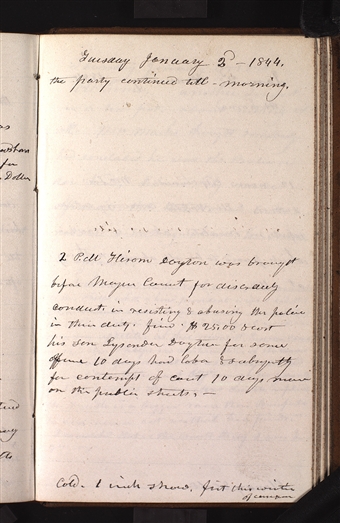 as
for
Dollars
Tuesday January 2d - 1844.
the party continued till - morning.
2 P.M. Hiram Dayton was brought
before Mayors Court for disorderly
conduct in resisting & abusing the police
in their duty. fine $25.00 & cost
his son Lysander Dayton for same
offence 10 days hard labor & subsequently
for contempt of court 10 days more
on the public streets. -
Cold - 1 inch snow. first this winter
of consequence